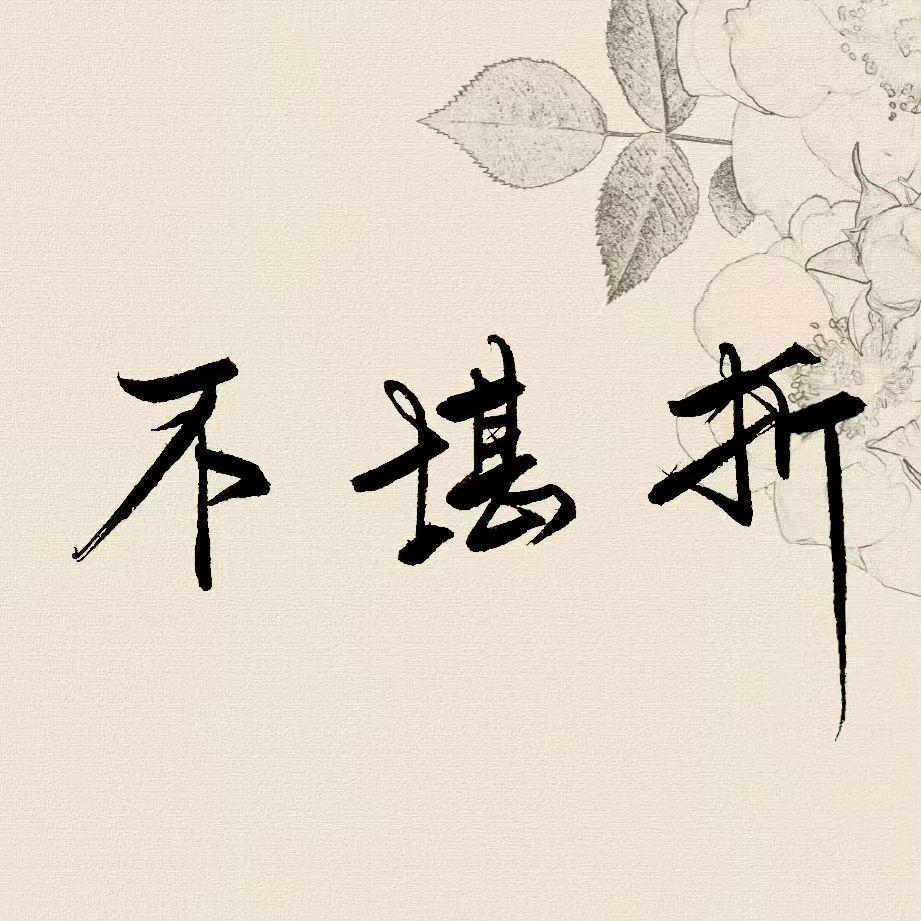 不堪折